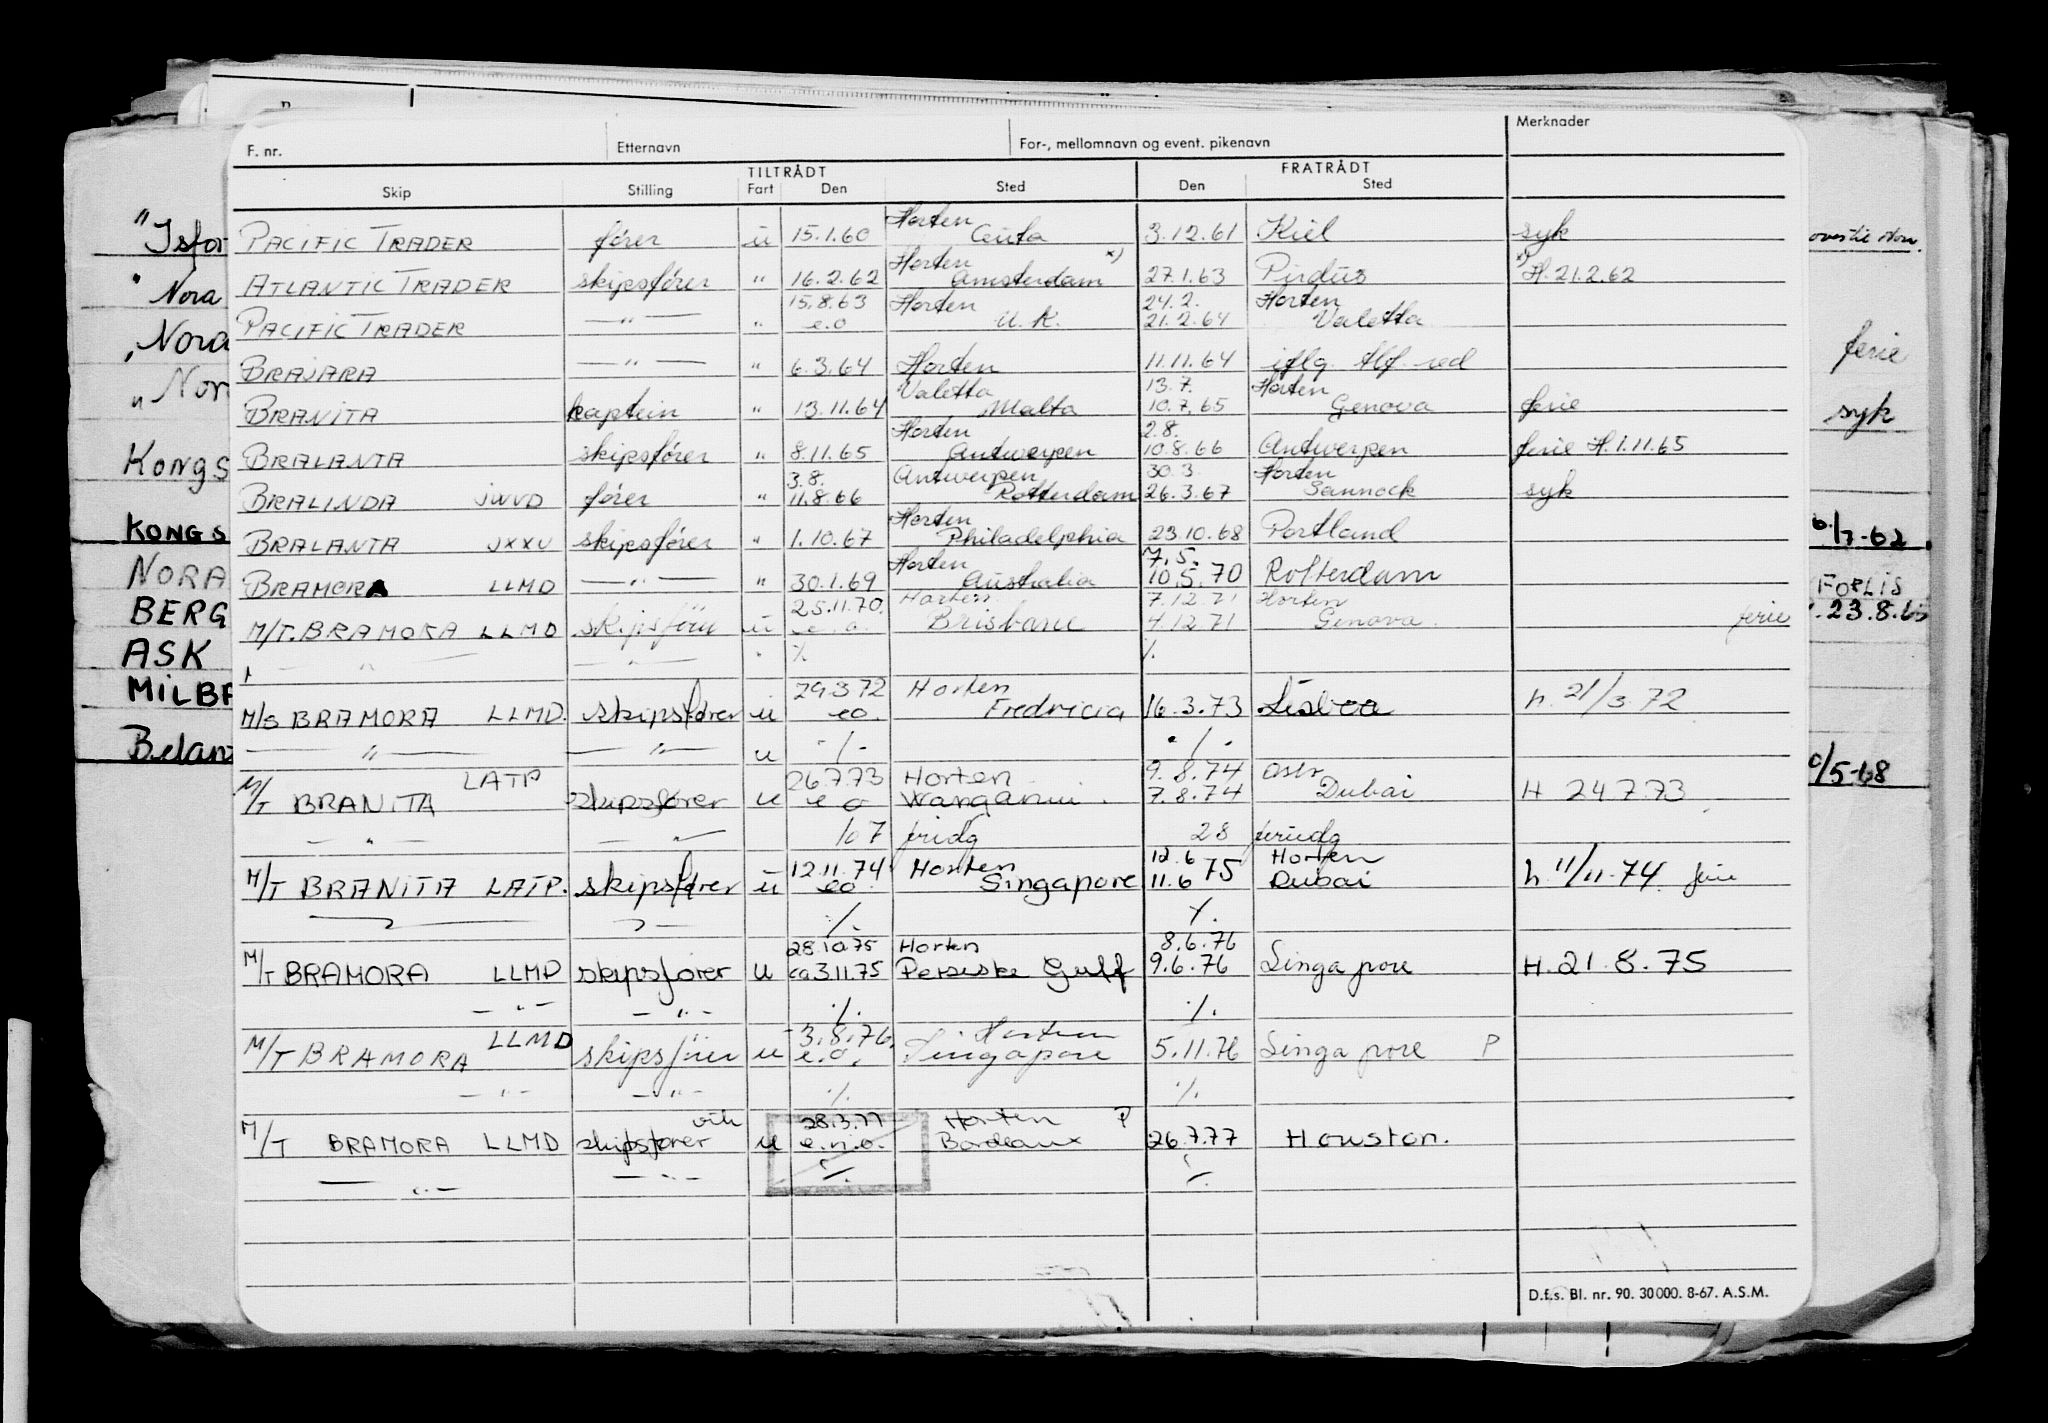 F. nr. Etternavn For-, mellomnavn og event. pikenavn Merknader
TILTRÅDT FRATRÅDT
Skip Stilling Fart Den Sted Den Sted
Horten
PACIFIC TRADER fører u 15.1.60 Ceuta 3.12.61 Kiel syk
Horten x) x)
ATLANTIC TRADER skipsfører " 16.2.62 Amsterdam 27.1.63 Piräus H. 21.2.62
15.8.63 Horten 24.2. Horten
PACIFIC TRADER —"— " e.o U.K. 21.2.64 Valetta
BRAJARA —"— " 6.3.64 Horten 11.11.64 iflg.
Valetta 13.7. Horten
BRANITA kaptein " 13.11.64 Malta 10.7.65 Genova ferie
Horten 2.8.
BRALANTA skipsfører " 8.11.65 Antwerpen 10.8.66 Antwerpen ferie H. 1.11.65
3.8. Antwerpen 30.3. Horten
BRALINDA JWVD fører " 11.8.66 Rotterdam 26.3.67 Sannock syk
Horten
BRALANTA JXXU skipsfører " 1.10.67 Philadelphia 23.10.68 Portland
Horten 7.5.
BRAMORA LLMD —"— " 30.1.69 Australia 10.5.70 Rotterdam
25.11.70. Horten 7.12.71 Horten
M/T. BRAMORA LLMD skipsfører u e.o. Brisbane 4.12.71 Genova. ferie
— " — — " — " ./. ./.
29.3.72 Horten
M/S BRAMORA LLMD. skipsfører u eo. Fredricia 16.3.73 Lisboa h. 21/3.72
— " — — " — u ./. ./.
LATP 26.7.73 Horten 9.8.74
M/T BRANITA skipsfører u e o Wanganui. 7.8.74 Dubai H 24.7.73
— " — — " — 107 fridg 28 feriedg
12.11.74 Horten 12.6 Horten
M/T BRANITA LATP. skipsfører u eo. Singapore 11.6 75 Dubai h. 11/11.74. ferie
./. ./.
28.10.75 Horten 8.6.76
M/T BRAMORA LLMD skipsfører u ca 3.11.75 Persiske Gulf 9.6.76 Singapore H. 21.8.75
— " — — " — ./. ./.
LLMD 3.8.76. Horten
M/T BRAMORA skipsfører u e.o. Singapore 5.11.76 Singapore P
— " — — " — ./. ./.
28.3.77 Horten P
M/T BRAMORA LLMD skipsfører u e.n.o. Bordeaux 26.7.77 Houston.
— " — — " — ./. ./.
D.f.s. Bl. nr. 90. 30000. 8-67. A.S.M.
"Isfor
" Nora
"Nora
" Nor
KONGS
KONGS
NORA
BERG
ASK
MILBR
Belan
ferie
syk
6/7-62
FORLIS
23.8.65
/5-68